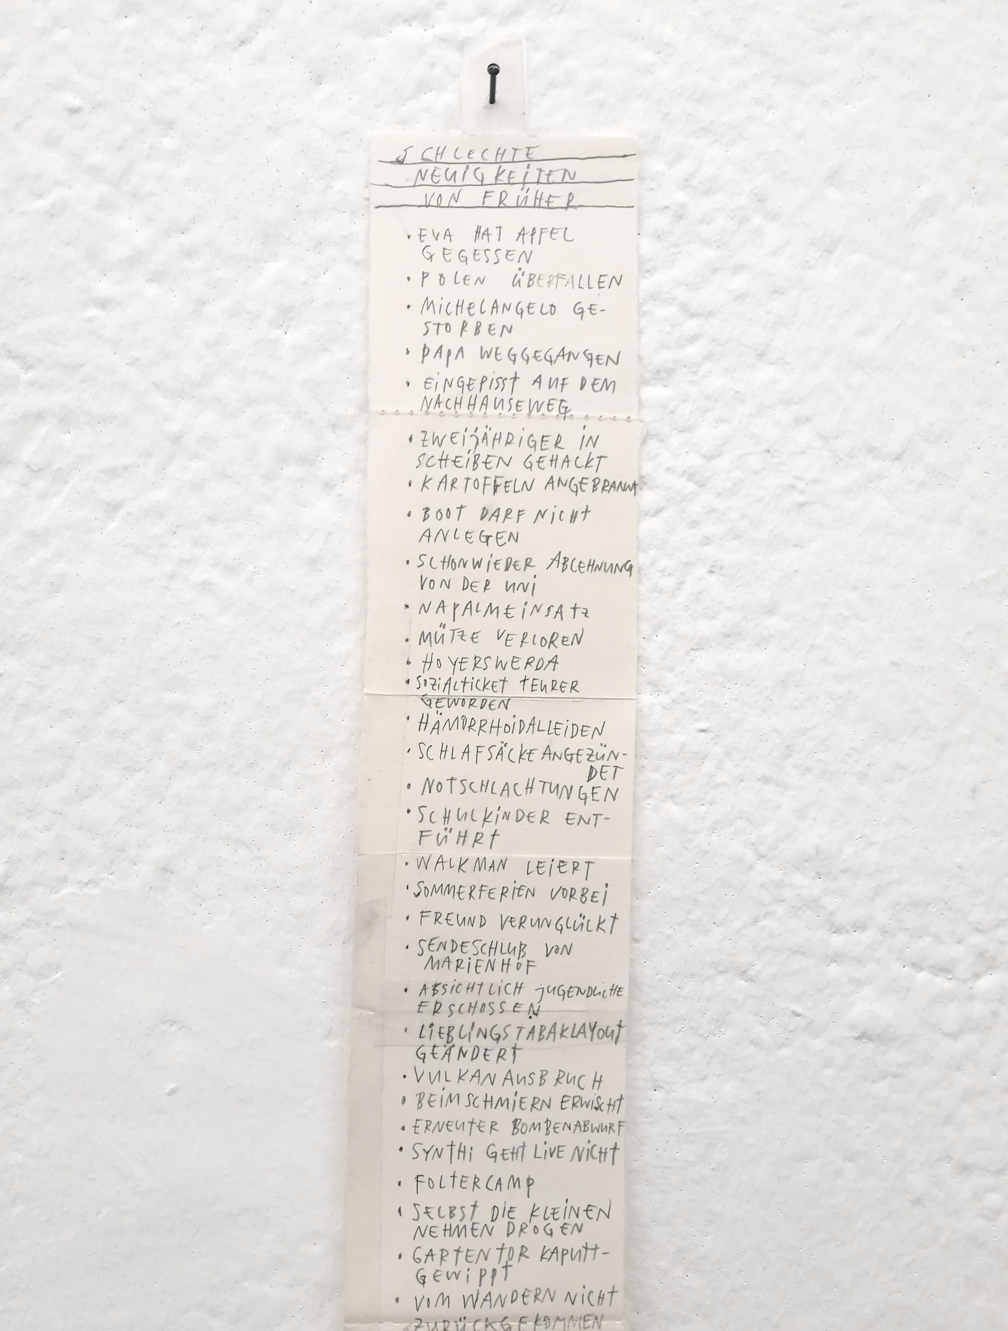 SCHLECHTE
NEUIGKEITEN
VON FRÜHER
• EVA HAT APFEL
GEGESSEN
• POLEN ÜBERFALLEN
• MICHELANGELO GE-
STORBEN
• PAPA WEGGEGANGEN
• EINGEPISST AUF DEM
NACHHAUSEWEG
• ZWEIJÄHRIGER IN
SCHEIBEN GEHACKT
• KARTOFFELN ANGEBRANNT
• BOOT DARF NICHT
ANLEGEN
• SCHONWIEDER ABLEHNUNG
VON DER UNI
• NAPALMEINSATZ
• MÜTZE VERLOREN
• HOYERSWERDA
• SOZIALTICKET TEURER
GEWORDEN
• HÄMORRHOIDALLEIDEN
• SCHLAFSÄCKE ANGEZÜN-
DET
• NOTSCHLACHTUNGEN
• SCHULKINDER ENT-
FÜHRT
• WALKMAN LEIERT
• SOMMERFERIEN VORBEI
• FREUND VERUNGLÜCKT
• SENDESCHLUß VON
MARIENHOF
• ABSICHTLICH JUGENDLICHE
ERSCHOSSEN
• LIEBLINGSTABAKLAYOUT
GEÄNDERT
• VULKANAUSBRUCH
• BEIM SCHMIERN ERWISCHT
• ERNEUTER BOMBENABWURF
• SYNTHI GEHT LIVE NICHT
• FOLTERCAMP
• SELBST DIE KLEINEN
NEHMEN DROGEN
• GARTENTOR KAPUTT-
GEWIPPT
• VOM WANDERN NICHT
ZURÜCKGEKOMMEN